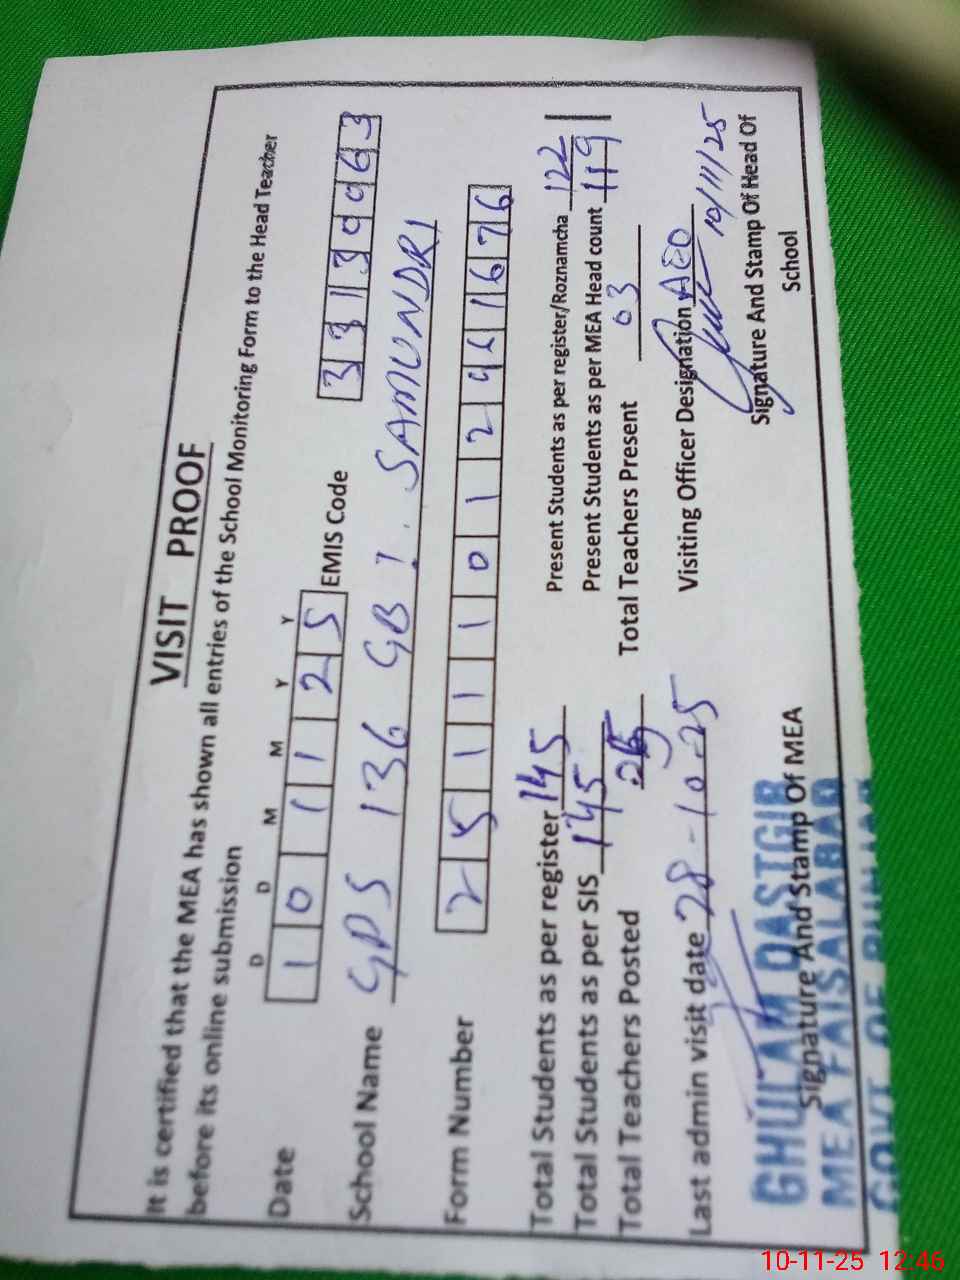 VISIT PROOF
It is certified that the MEA has shown all entries of the School Monitoring Form to the Head Teacher
before its online submission
D D M M Y Y
Date 1 0 1 1 2 5 EMIS Code 3 3 1 3 0 0 6 3
School Name GPS 136 GB I. SAMUNDRI
Form Number 2 5 1 1 1 0 1 2 9 1 6 7 6
Total Students as per register 145 Present Students as per register/Roznamcha 122
Total Students as per SIS 145 Present Students as per MEA Head count 119
Total Teachers Posted Total Teachers Present 03
Last admin visit date 28-10-25 Visiting Officer Designation AEO
10/11/25
Signature And Stamp Of MEA Signature And Stamp Of Head Of
School
GHULAM DASTGIR
MEA FAISALABAD
GOVT OF PUNJAB
10-11-25 12:46